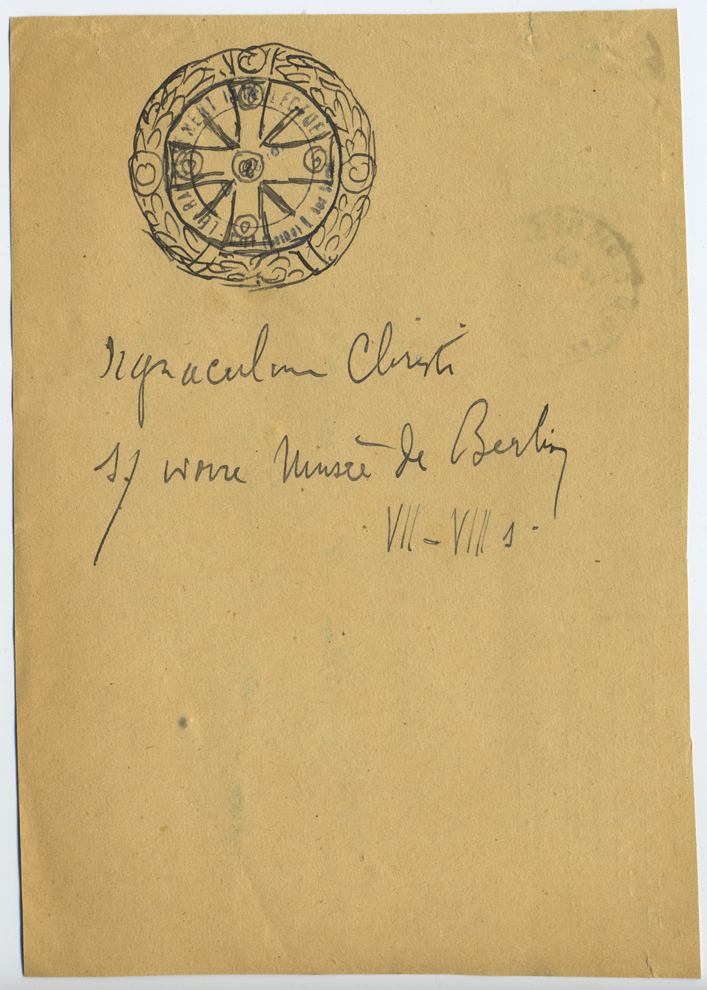 Signaculum Christi
s/ ivoire Musée de Berlin
VII – VIII s.